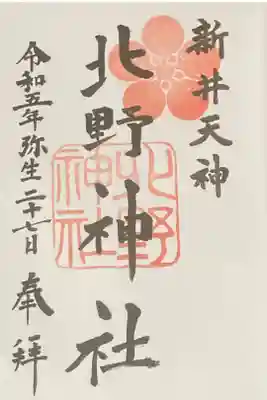 新井天神
北野神社
北野
神社
令和五年弥生二十七日
奉拝